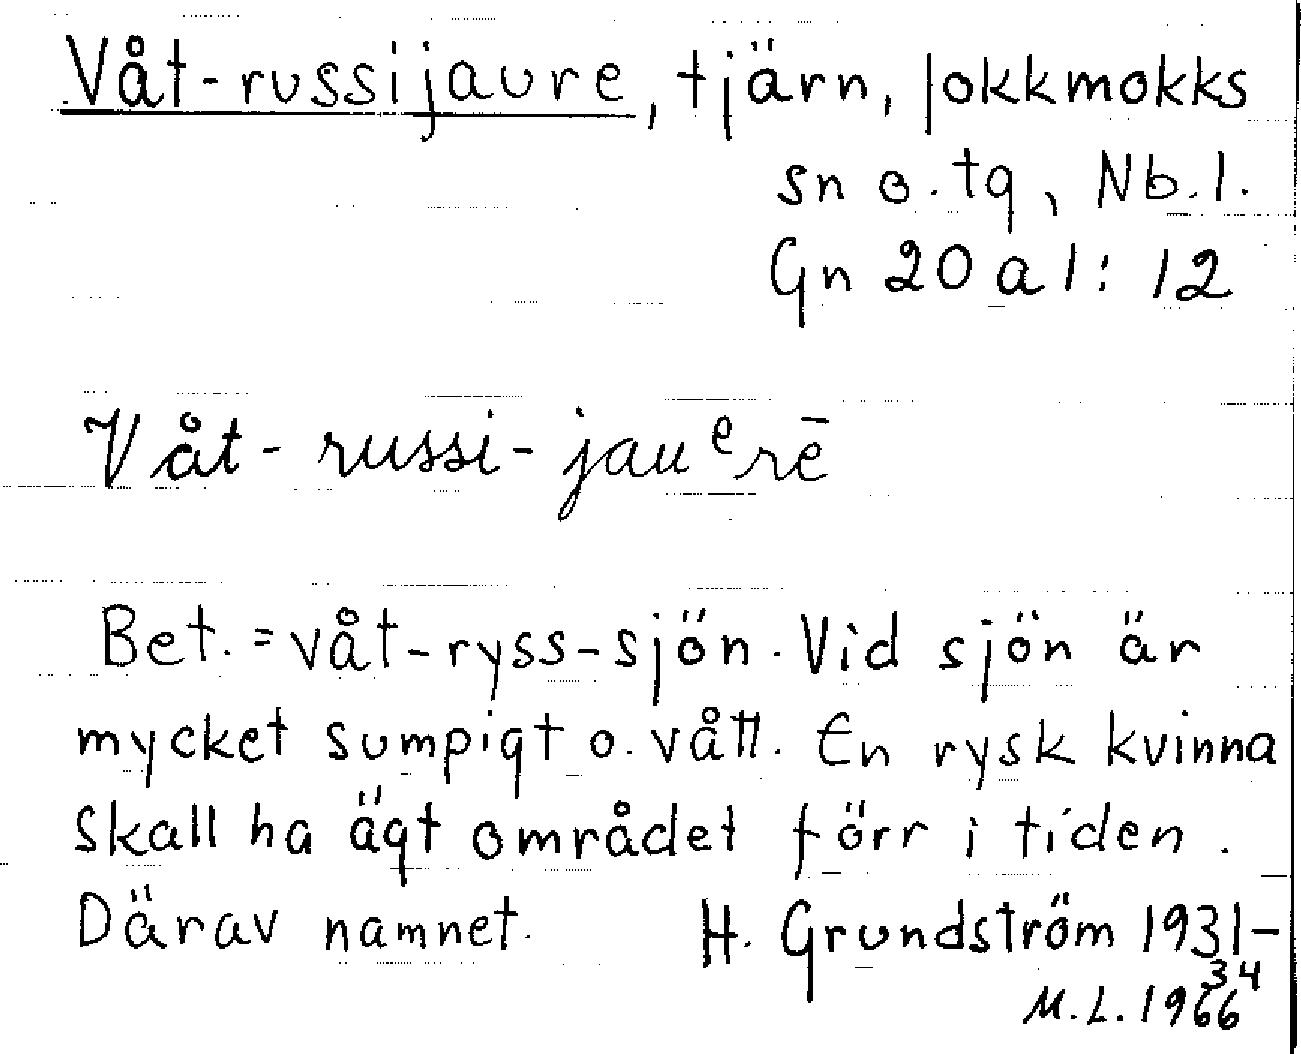 Våt-russijaure, tjärn, Jokkmokks
sn o. tg, Nb.l.
Gn 20 a 1: 12
Våt-russi-jauᵉrē
Bet. = våt-ryss-sjön. Vid sjön är
mycket sumpigt o. vått. En rysk kvinna
skall ha ägt området förr i tiden.
Därav namnet. H. Grundström 1931-
34
M.L. 1966